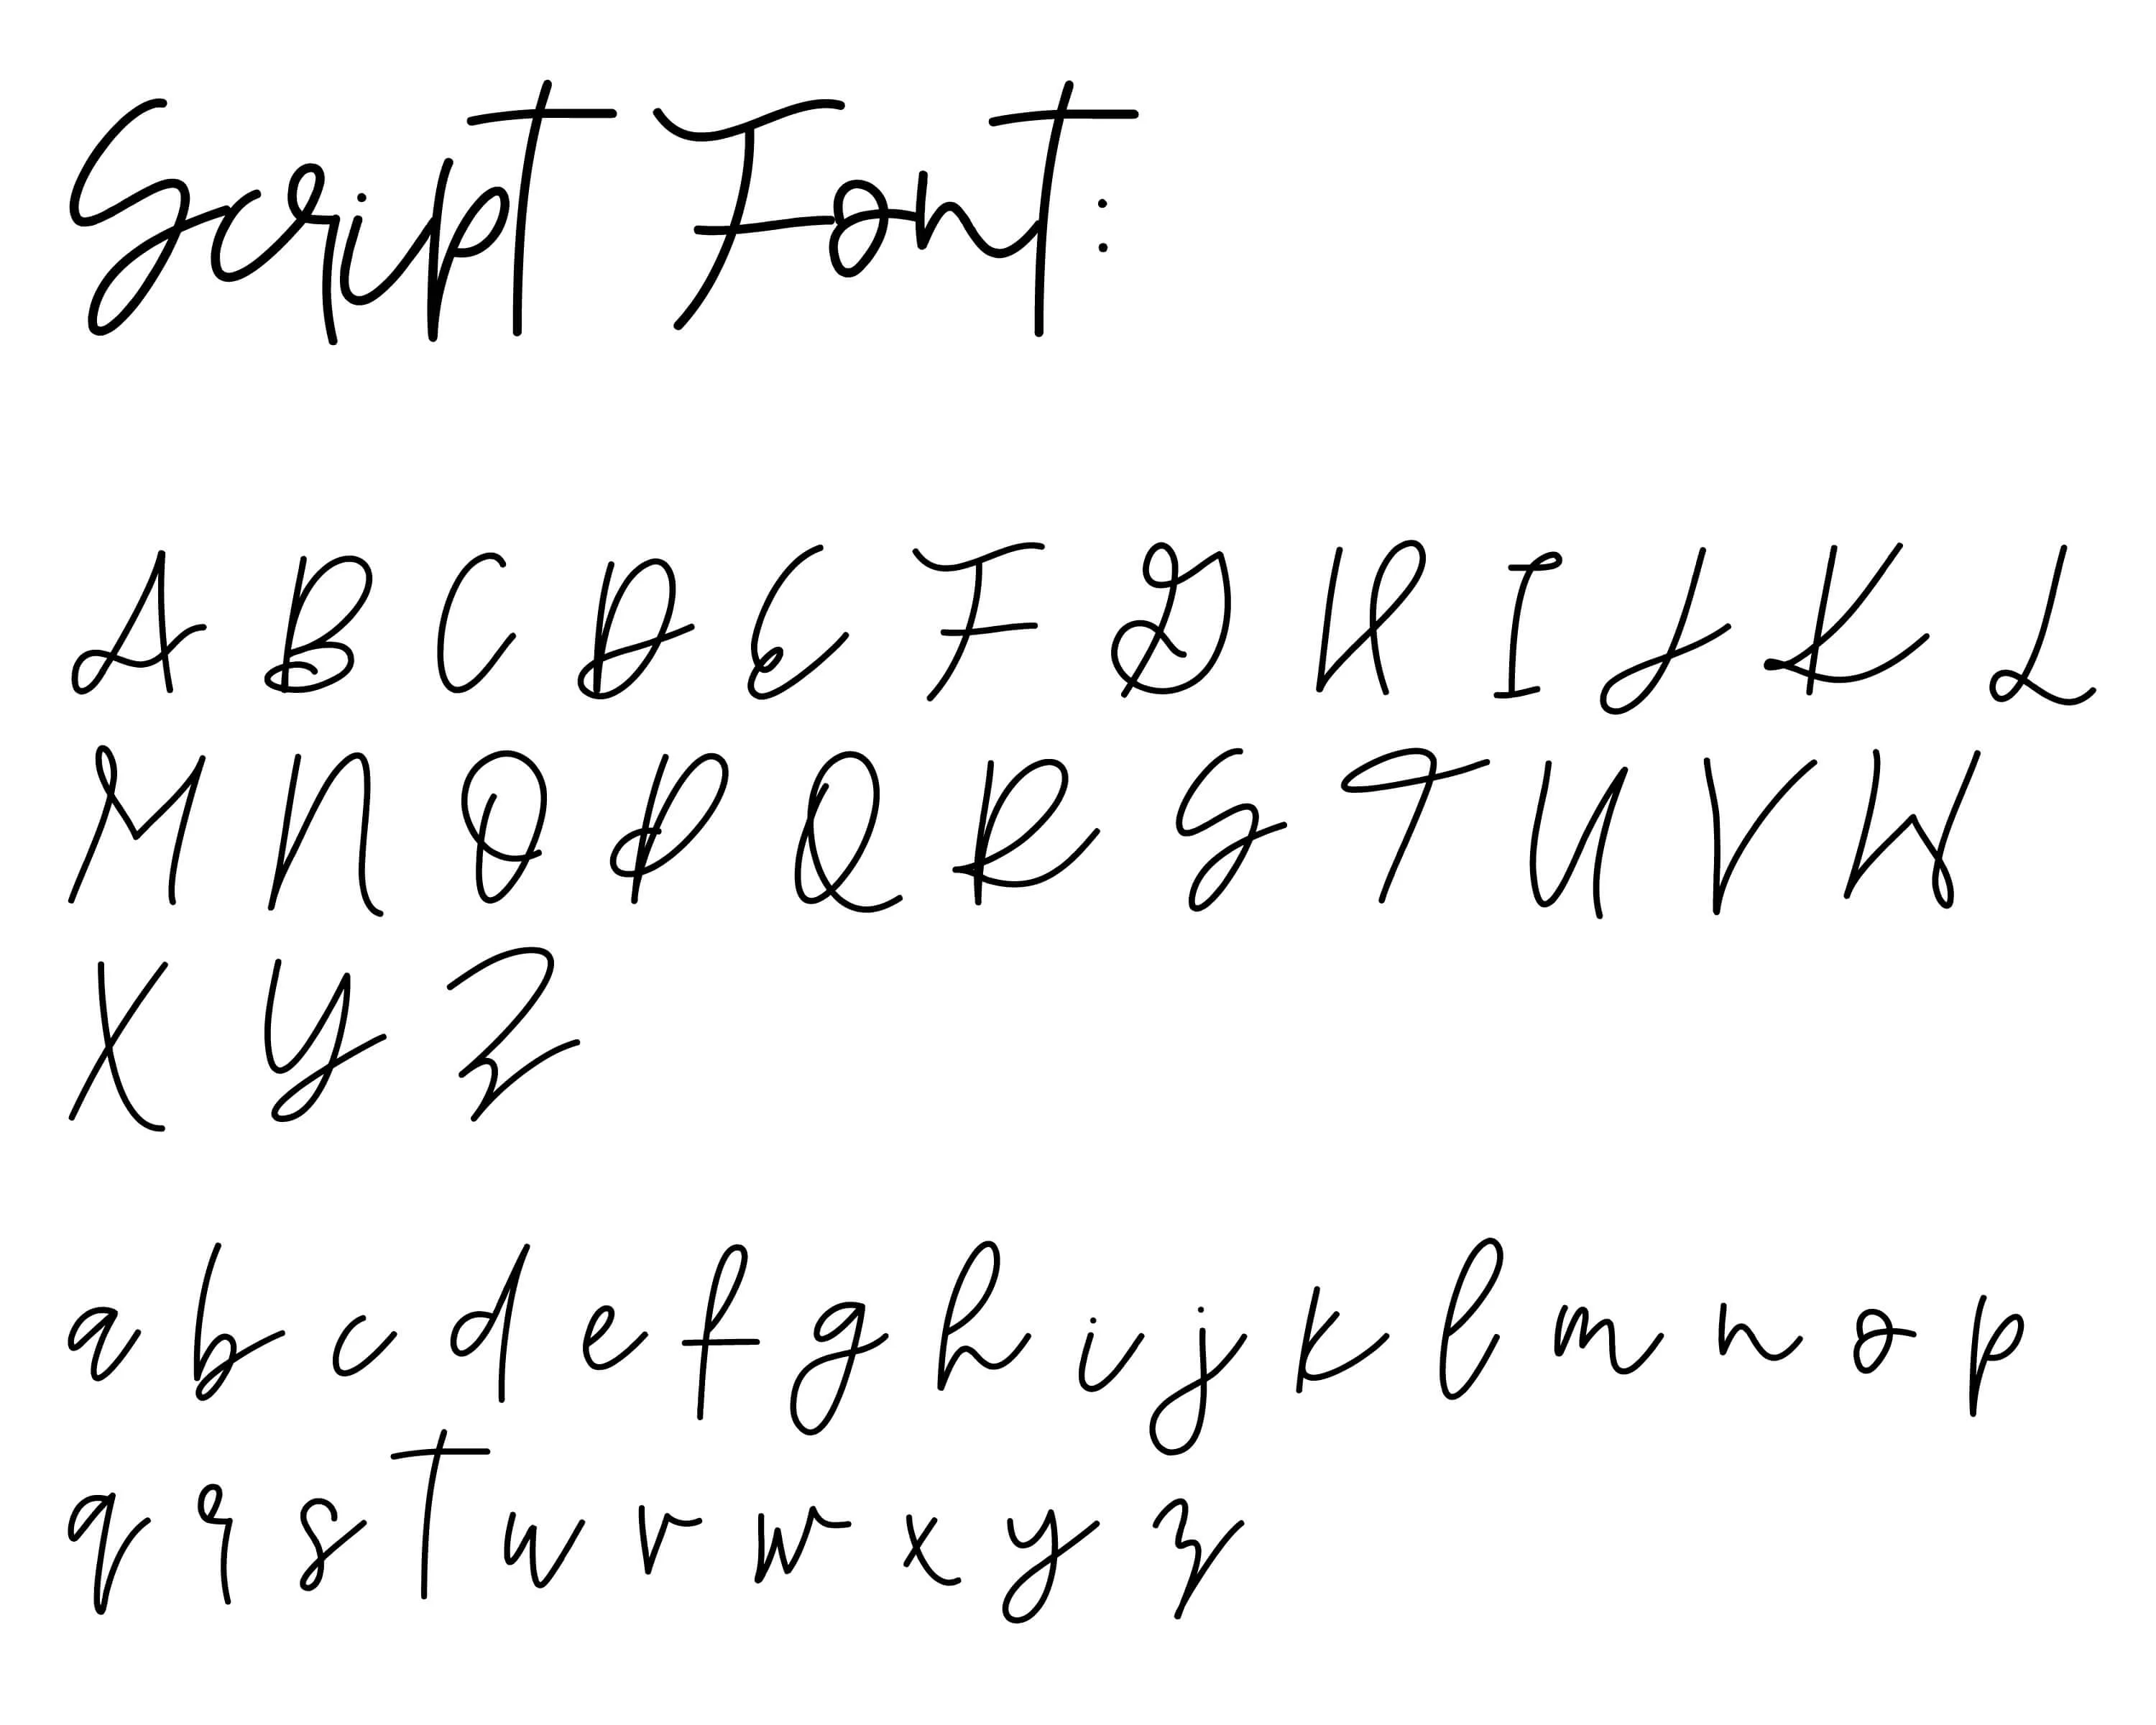 Script Font:
A B C D E F G H I J K L
M N O P Q R S T U V W
X Y Z
a b c d e f g h i j k l m n o p
q r s t u v w x y z